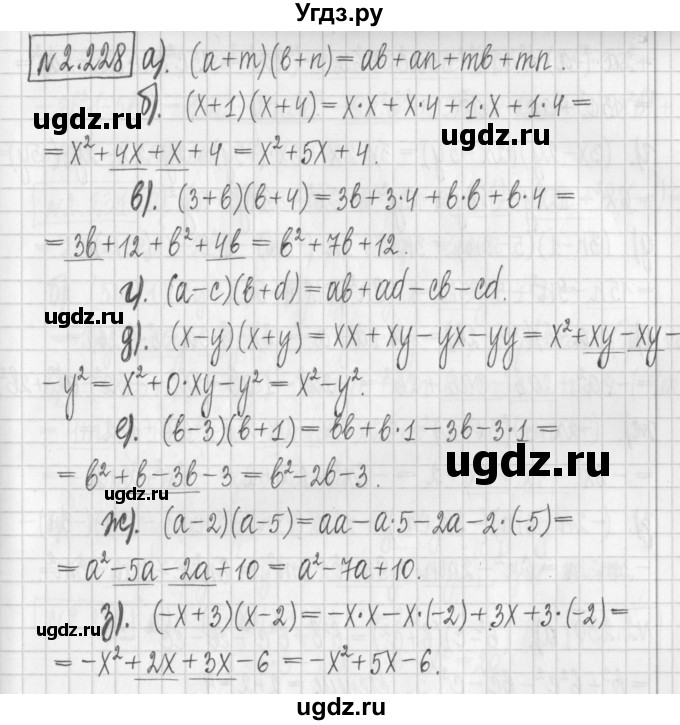 Угдз.ру
№2.228 а). (a+m)(b+n)=ab+an+mb+mn.
б). (x+1)(x+4)=x·x+x·4+1·x+1·4=
ugdz.ru ugdz.ru
=x²+4x+x+4=x²+5x+4.
в). (3+b)(b+4)=3b+3·4+b·b+b·4=
=3b+12+b²+4b=b²+7b+12.
г). (a-c)(b+d)=ab+ad-cb-cd.
ugdz.ru
д). (x-y)(x+y)=xx+xy-yx-yy=x²+xy-xy-
-y²=x²+0·xy-y²=x²-y².
е). (b-3)(b+1)=bb+b·1-3b-3·1=
ugdz.ru
=b²+b-3b-3=b²-2b-3.
ugdz.ru
ж). (a-2)(a-5)=aa-a·5-2a-2·(-5)=
=a²-5a-2a+10=a²-7a+10.
з). (-x+3)(x-2)=-x·x-x·(-2)+3x+3·(-2)=
ugdz.ru
=-x²+2x+3x-6=-x²+5x-6.
ugdz.ru